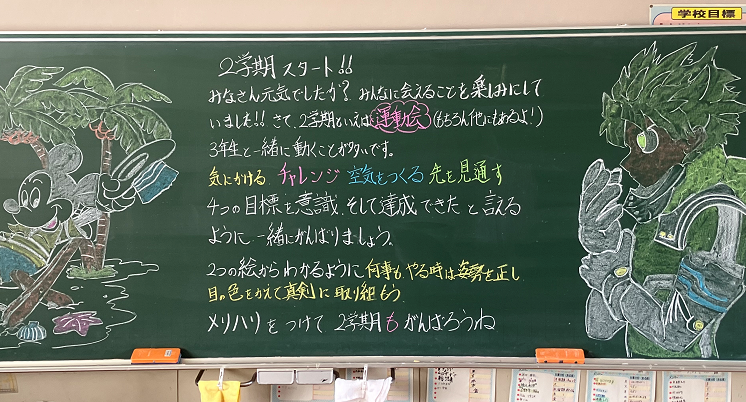 学校目標
2学期スタート!!
みなさん元気でしたか? みんなに会えることを楽しみにして
いました!! さて、2学期といえば運動会(もちろん他にもあるよ!)
3年生と一緒に動くことが多いです。
気にかける チャレンジ 空気をつくる 先を見通す
4つの目標を意識、そして達成できたと言える
ように一緒にがんばりましょう。
2つの絵からわかるように何事も やる時は姿勢を正し
目の色をかえて真剣に取り組もう
メリハリをつけて 2学期もがんばろうね